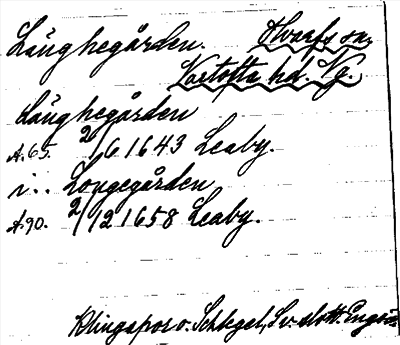 Läughegården. Hvarfs sn,
Vartofta hd. Vg.
Läughegården
A.65. 2/6 1643 Leaby.
i.. Longegården
A.90. 2/12 1658 Leaby.
Klingspor o. Schlegel, Sv. slott.